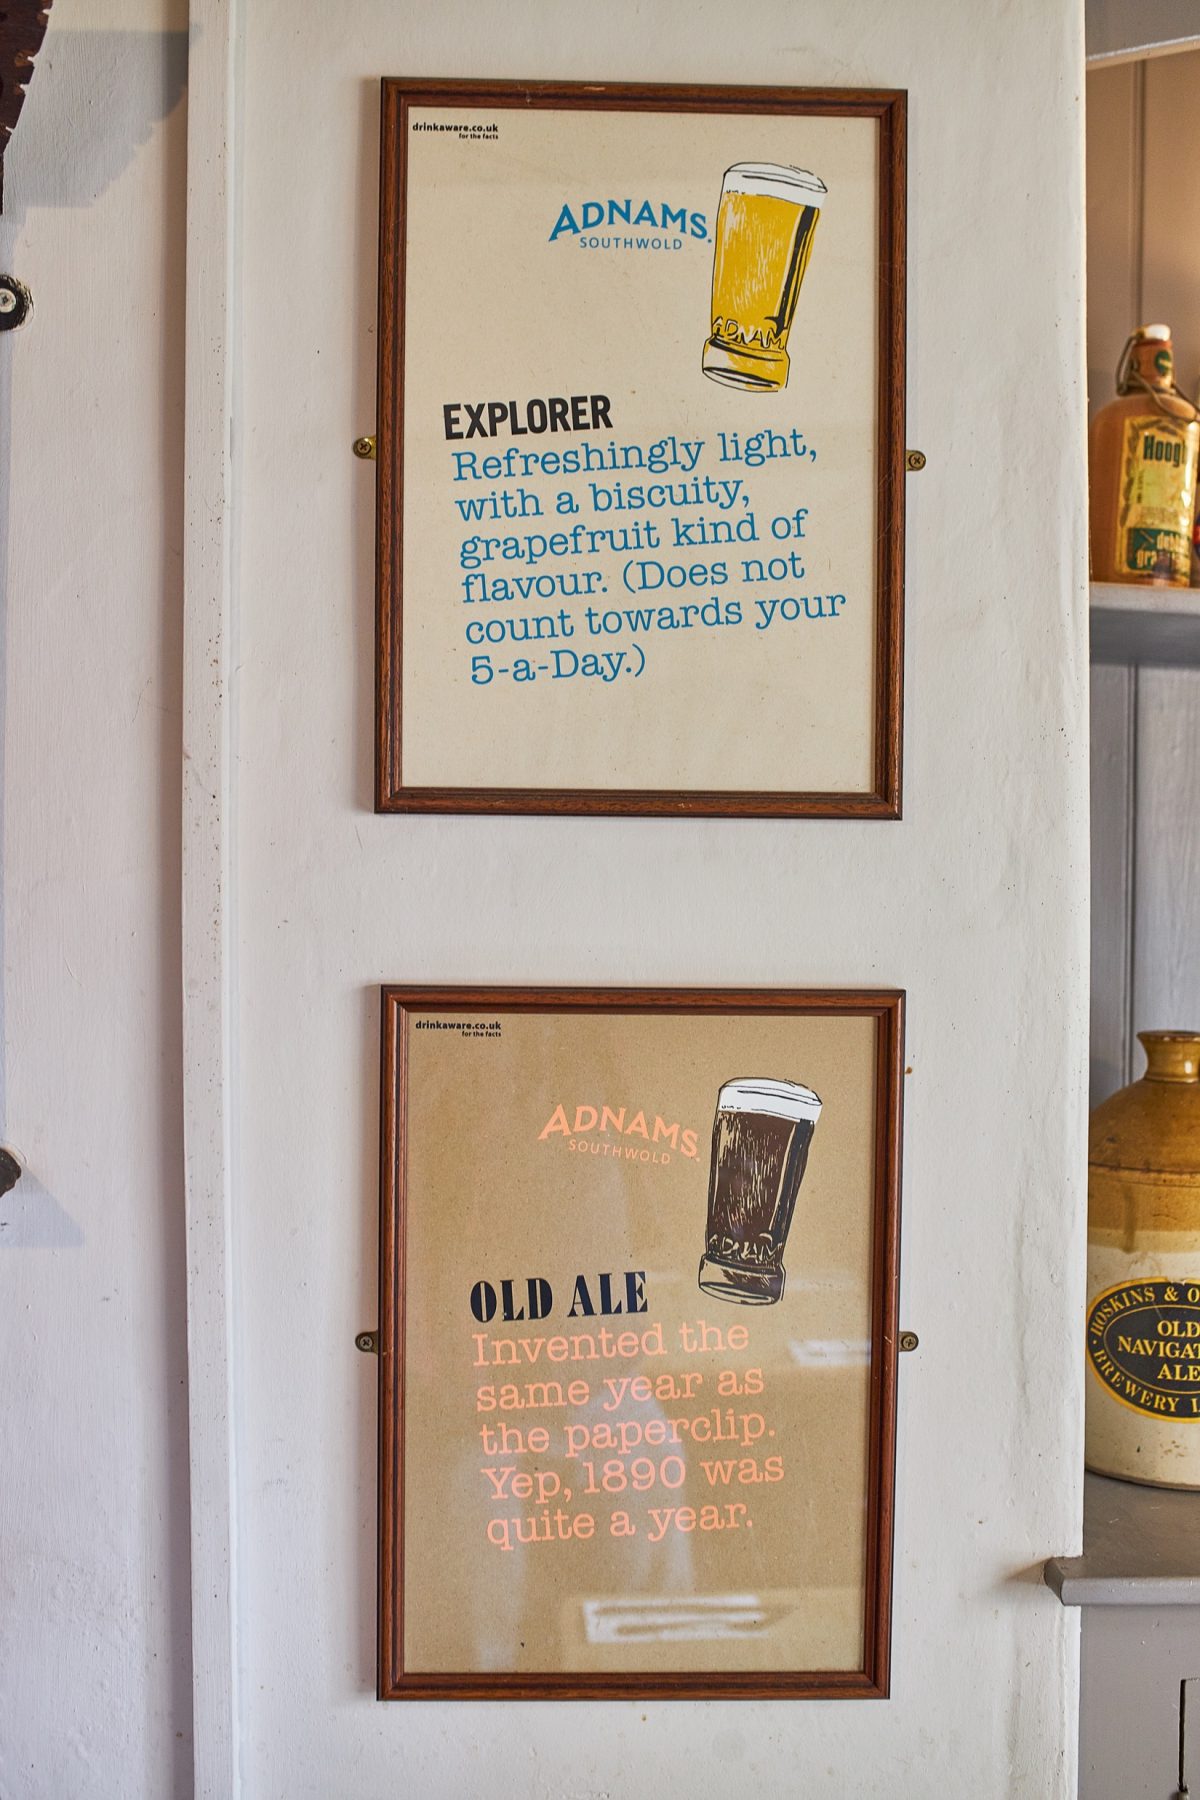 drinkaware.co.uk
for the facts
ADNAMS
SOUTHWOLD
ADNAM
EXPLORER
Refreshingly light,
with a biscuity,
grapefruit kind of
flavour. (Does not
count towards your
5-a-Day.)
drinkaware.co.uk
for the facts
ADNAMS
SOUTHWOLD
ADNAM
OLD ALE
Invented the
same year as
the paperclip.
Yep, 1890 was
quite a year.
HOSKINS & O
OLD
NAVIGAT
ALE
BREWERY L